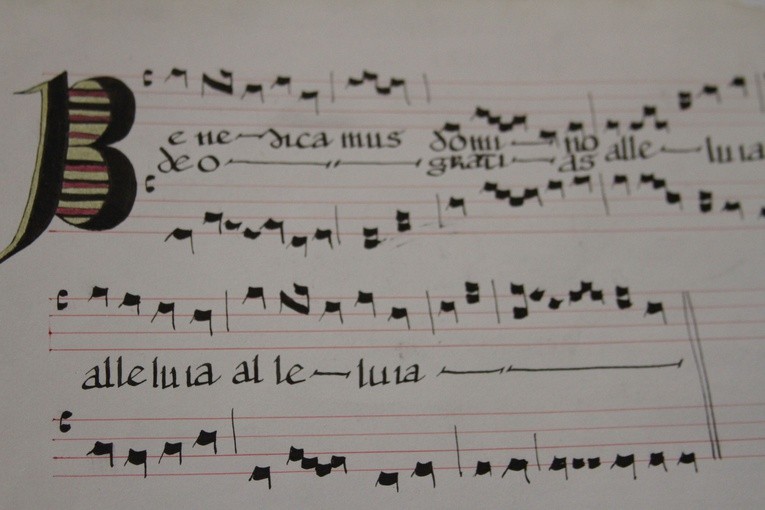 Benedicamus domino alleluia
deo gratias
alleluia alleluia